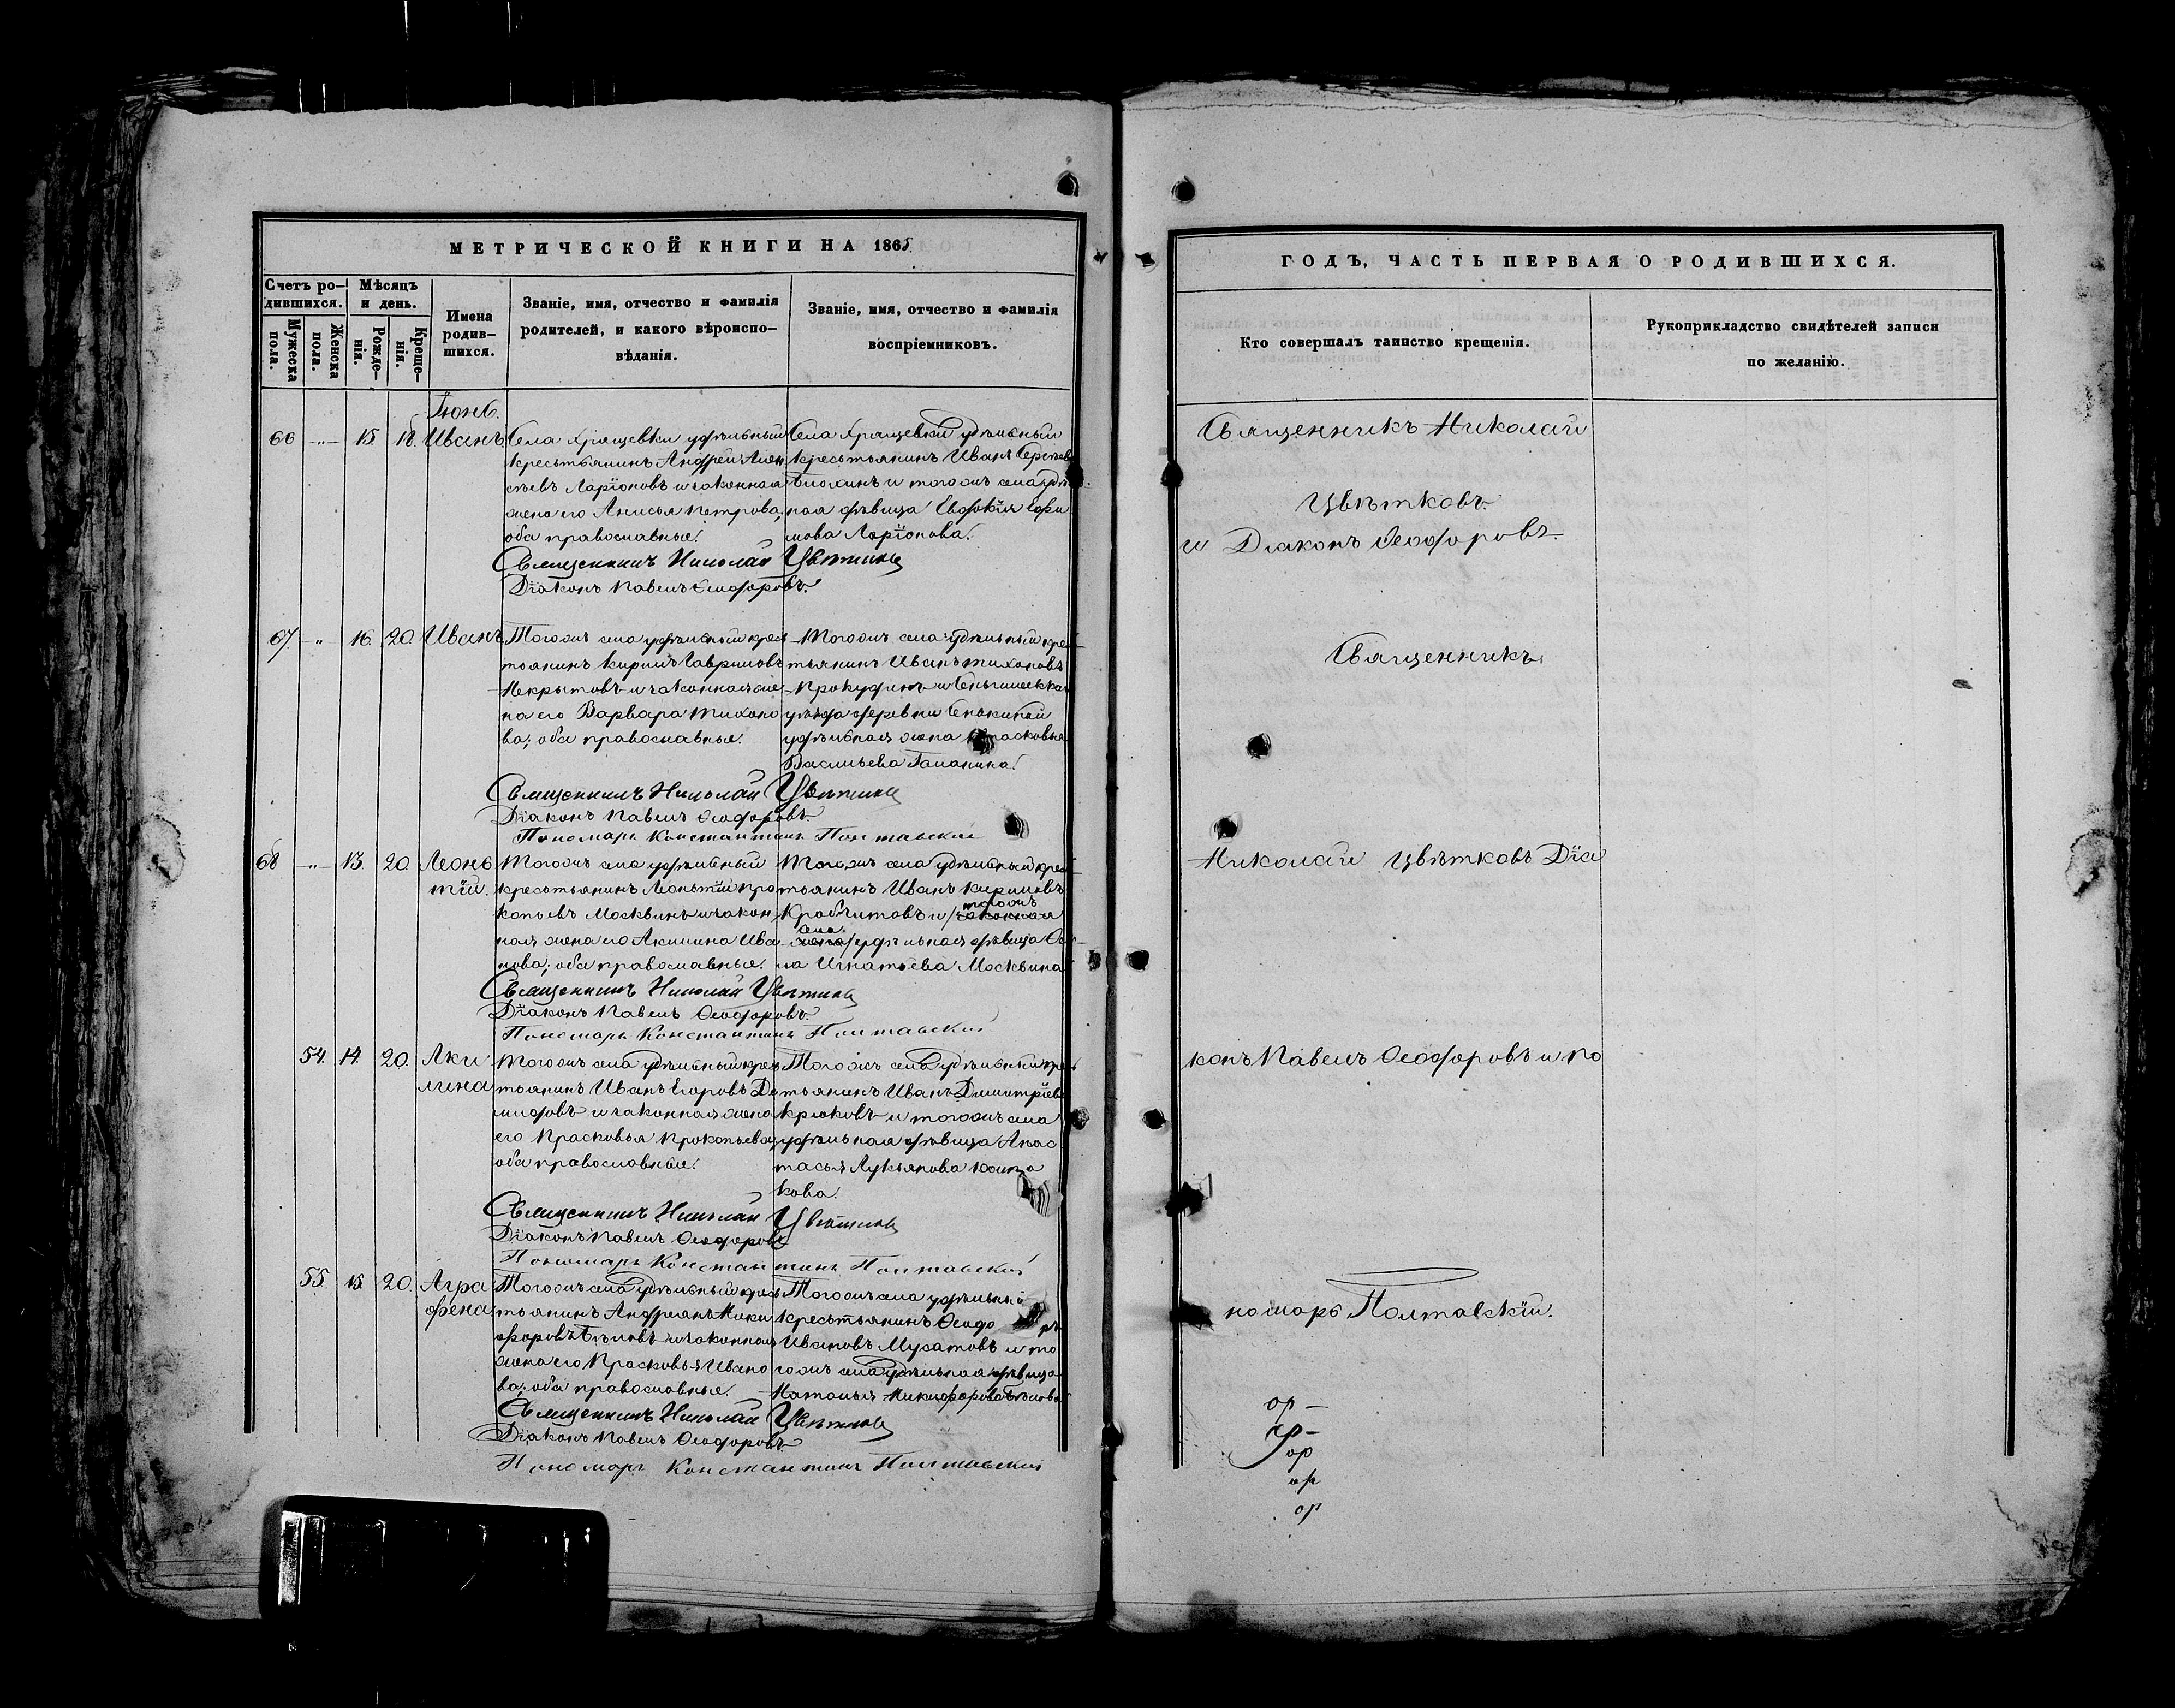 МЕТРИЧЕСКОЙ КНИГИ НА 1865
Счетъ ро-
дившихся.
Мѣсяцъ
и день.
Имена
родив-
шихся.
Званіе, имя, отчество и фамилія
родителей, и какого вѣроиспо-
вѣданія.
Званіе, имя, отчество и фамилія
воспріемниковъ.
Мужеска
пола.
Женска
пола.
Рожде-
нія.
Креще-
нія.
Іюнь.
66 -"- 15 18. Иванъ
Села Хрящевки удѣльный
крестьянинъ Андрей Леон
тьевъ Ларіоновъ и законная
жена его Анисья Петрова,
оба православные.
Села Хрящевки удѣльный
крестьянинъ Иванъ Сергѣевъ
и тогожъ села удѣль
ная дѣвица Евдокія Ефи
мова Ларіонова.
Священникъ Николай Цвѣтковъ
Діаконъ Павелъ Ѳеодоровъ.
67. " 16. 20. Иванъ
Тогожъ села удѣльный крес
тьянинъ Кирилъ Гавриловъ
Некрытовъ и законная же
на его Варвара Тихоно
ва; оба православные.
Тогожъ села удѣльный крес
тьянинъ Иванъ Тихоновъ
Прокудинъ и Сенгилеевскаго
уѣзда деревни
удѣльная жена Прасковья
Васильева
Священникъ Николай Цвѣтковъ
Діаконъ Павелъ Ѳеодоровъ.
Пономарь Константинъ Полтавскій
68 -"- 13. 20. Леонь
тій.
Тогожъ села удѣльный
крестьянинъ Леонтій Про
копьевъ Москвинъ и закон
ная жена его Акилина Ива
нова; оба православные.
Тогожъ села удѣльный крес
тьянинъ Иванъ Кириловъ
и законная
тогожъ
села
жена удѣльная дѣвица
Игнатьева Москвина
Священникъ Николай Цвѣтковъ
Діаконъ Павелъ Ѳеодоровъ.
Пономарь Константинъ Полтавскій
54. 14. 20. Аки
лина
Тогожъ села удѣльный крес
тьянинъ Иванъ Егоровъ Де
мидовъ и законная жена
его Прасковья Прокопьева,
оба православные.
Тогожъ села удѣльный крес
тьянинъ Иванъ Димитріевъ
Крюковъ и тогожъ села
удѣльная дѣвица Анас
тасья Лукьянова
кова.
Священникъ Николай Цвѣтковъ
Діаконъ Павелъ Ѳеодоровъ
Пономарь Константинъ Полтавскій
55. 15. 20. Агра
фена
Тогожъ села удѣльный крес
тьянинъ Андреянъ Ники
форовъ Бѣловъ и законная
жена его Прасковья Ивано
ва; оба православные.
Тогожъ села удѣльный
крестьянинъ Ѳеодоръ
Ивановъ Мусатовъ и то
гожъ села удѣльная дѣвица
Наталья Никифорова Бѣлова
Священникъ Николай Цвѣтковъ
Діаконъ Павелъ Ѳеодоровъ.
Пономарь Константинъ Полтавскій
ГОДЪ, ЧАСТЬ ПЕРВАЯ О РОДИВШИХСЯ.
Кто совершалъ таинство крещенія.
Рукоприкладство свидѣтелей записи
по желанію.
Священникъ Николай
Цвѣтковъ.
и Діаконъ Ѳеодоровъ
Священникъ
Николай Цвѣтковъ Діа
конъ Павелъ Ѳеодоровъ и по
номарь Полтавскій.